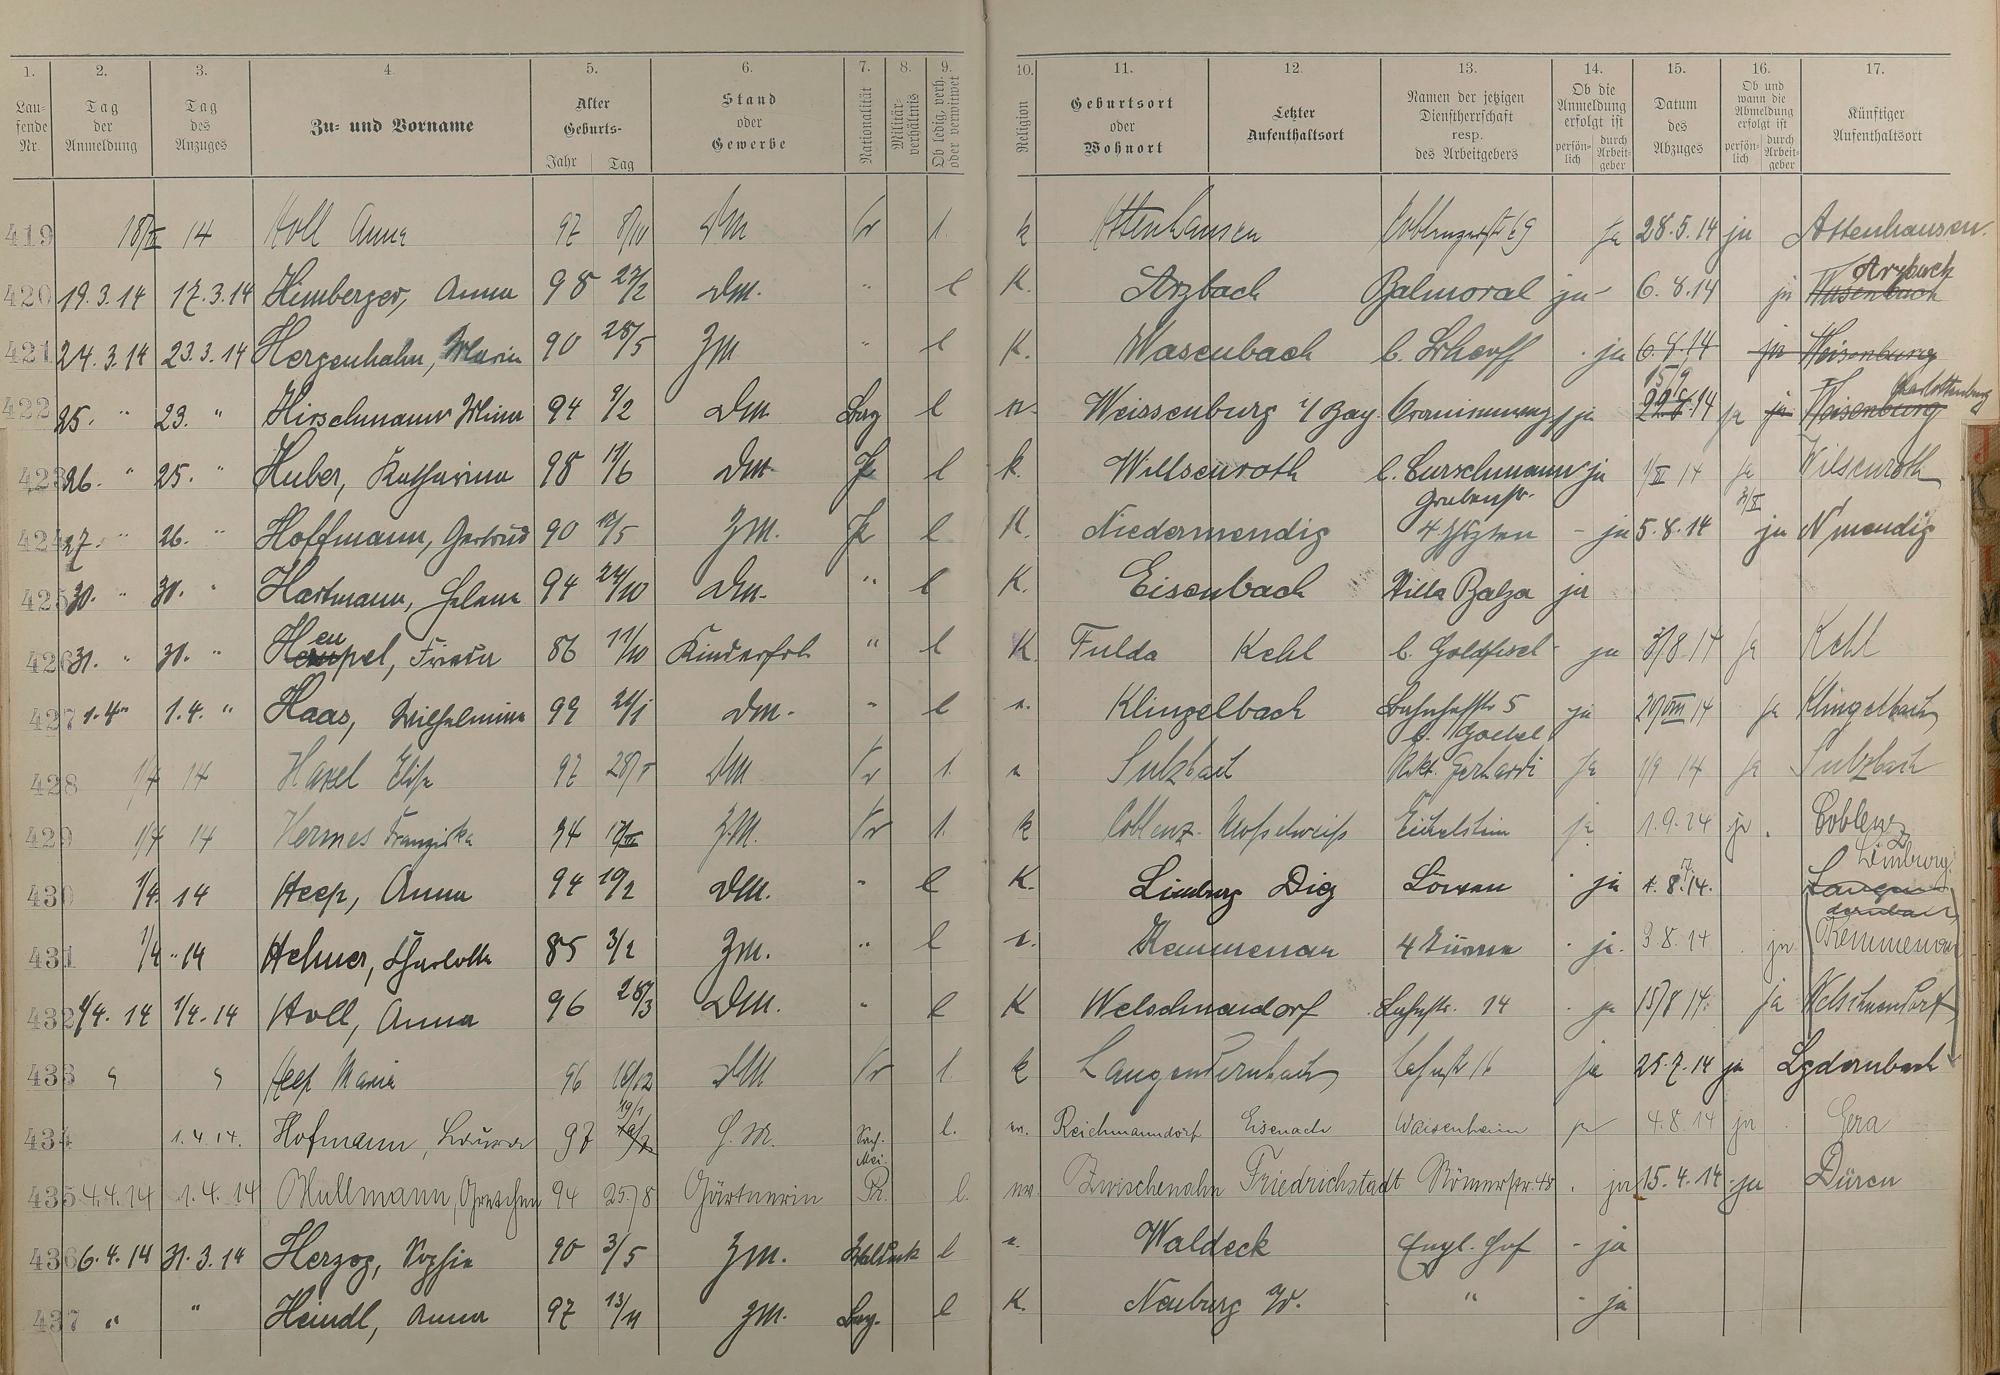 1. 2. 3. 4. 5. 6. 7. 8. 9. 10. 11. 12. 13. 14. 15. 16. 17.
Lau-
fende
Nr.
Tag
der
Anmeldung
Tag
des
Anzuges
Zu- und Vorname
Alter
Geburts-
Jahr Tag
Stand
oder
Gewerbe
Nationalität
Militär-
verhältnis
Ob ledig, verh.
oder verwitwet
Religion
Geburtsort
oder
Wohnort
Letzter
Aufenthaltsort
Namen der jetzigen
Dienstherrschaft
resp.
des Arbeitgebers
Ob die
Anmeldung
erfolgt ist
persön-
lich
durch
Arbeit-
geber
Datum
des
Abzuges
Ob und
wann die
Abmeldung
erfolgt ist
persön-
lich
durch
Arbeit-
geber
Künftiger
Aufenthaltsort
419 14 Holl Anna 97 DM Pr l. k Attenhausen Coblenzerstr 69 ja 28.5.14 ja Attenhausen
420 19.3.14 17.3.14 Himberger, Anna 98 27/2 DM. " l K. Arzbach Balmoral ja - 6.8.14 ja Wasenbach Arzbach
421 24.3.14 23.3.14 Hergenhahn, Maria 90 28/5 ZM " l K. Wasenbach ja 6.8.14 ja Weisenburg
422 25. " 23. " Hirschmann Mina 94 9/2 DM Bay l Weissenburg i/Bay. ja 15/9 14 ja ja Weisenburg Charlottenburg
423 26. " 25. " Huber, Katharina 98 DM l k. Willsenroth b. Curschmann Grabenstr. ja 14 ja Wilsenroth
424 27. " 26. " Hoffmann, Gertrud 90 12/5 ZM. l K. Niedermendig - ja 5.8.14 ja N'mendig
425 30. " 30. " Hartmann, Helene 94 24/10 DM. " l K. Eisenbach Villa Balza ja
426 31. " 30. " Hempel, Frieda 86 11/10 Kinderfrl. " l K Fulda Kehl b. Goldfisch ja 8.14 ja Kehl
427 1.4" 1.4. " Haas, Wilhelmine 99 24/1 DM. " l Klingelbach Bahnhofstr 5 b. Goebel ja 14 ja Klingelbach
428 1/4 14 Haxel Elise 97 DM Pr l. Sulzbach Gerhardi ja 1/9 14 ja Sulzbach
429 1/4 14 Hermes Franziska 94 ZM. Pr l. k Coblenz- Moselweiß Eichelstein ja 1.9.14 ja. Coblenz
430 1/4. 14 Heep, Anna 94 19/2 DM. " l K. Limburg Diez Löwen ja 8.14. Langendernbach Limburg
431 1/4 " 14 Helmer, Charlotte 85 3/2 ZM. " l Kemmenau 4 Türme ja. 3.8.14 ja. Kemmenau
432 1/4. 14 1/4. 14 Holl, Anna 96 28/3 DM. " l K Welschneudorf Bahnstr. 14 ja 15/8 14. ja Welschneudorf
433 " " Heep Maria 96 DM Pr l. k Langendernbach ja 25.7.14 ja Lgdernbach
434 1.4.14. Hofmann, Laura 97 19/1 Sach. Mei. l. Reichmannsdorf Eisenach Waisenheim ja 4.8.14 ja Gera
435 4.4.14 1.4.14 Hullmann, Gretchen 94 25/8 Gärtnerin Pr. l. Zwischenahn Friedrichstadt Römerstr. 48 ja 15.4.14 ja Düren
436 6.4.14 31.3.14 Herzog, Sophie 90 3/5 ZM. Waldeck l Waldeck Engl. Hof - ja
437 " " Heindl, Anna 97 13/11 ZM. Bay. l K. Neuburg " - ja